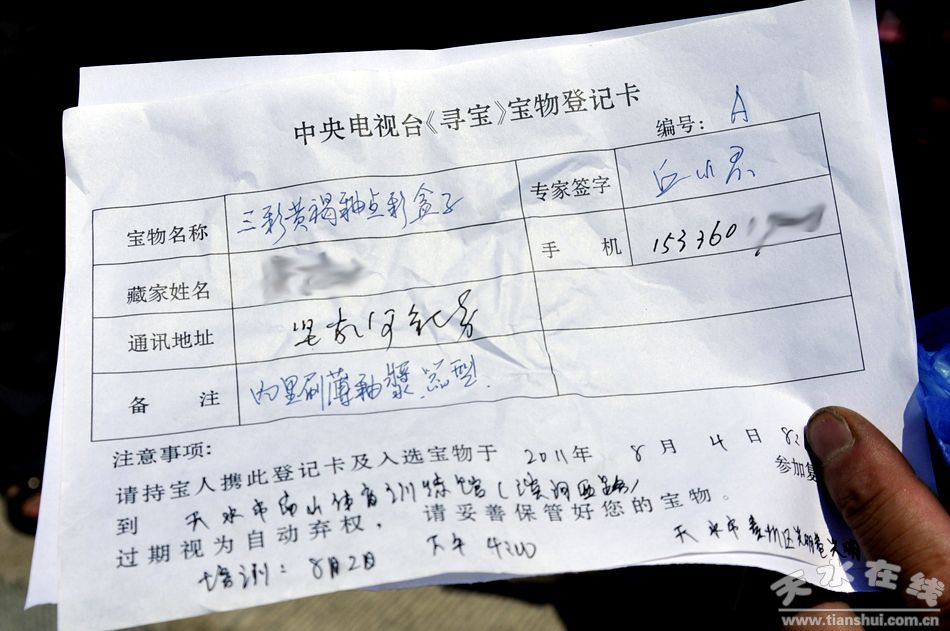 中央电视台《寻宝》宝物登记卡
编号: A
宝物名称 三彩黄褐釉点彩盒子 专家签字
藏家姓名 手 机 153360
通讯地址
备 注 内里刷薄釉浆
注意事项:
请持宝人携此登记卡及入选宝物于 2011年 8月 4日 8:
参加复
到 天水市 山体育训练馆
过期视为自动弃权，请妥善保管好您的宝物。
培训: 8月2日 下午 4:00 天水市秦州区
天水在线
www.tianshui.com.cn